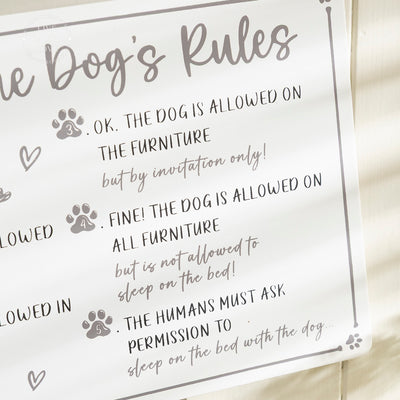 he Dog's Rules
LOWED
LOWED IN
3. OK. THE DOG IS ALLOWED ON
THE FURNITURE
but by invitation only!
4. FINE! THE DOG IS ALLOWED ON
ALL FURNITURE
but is not allowed to
sleep on the bed!
5. THE HUMANS MUST ASK
PERMISSION TO
sleep on the bed with the dog...